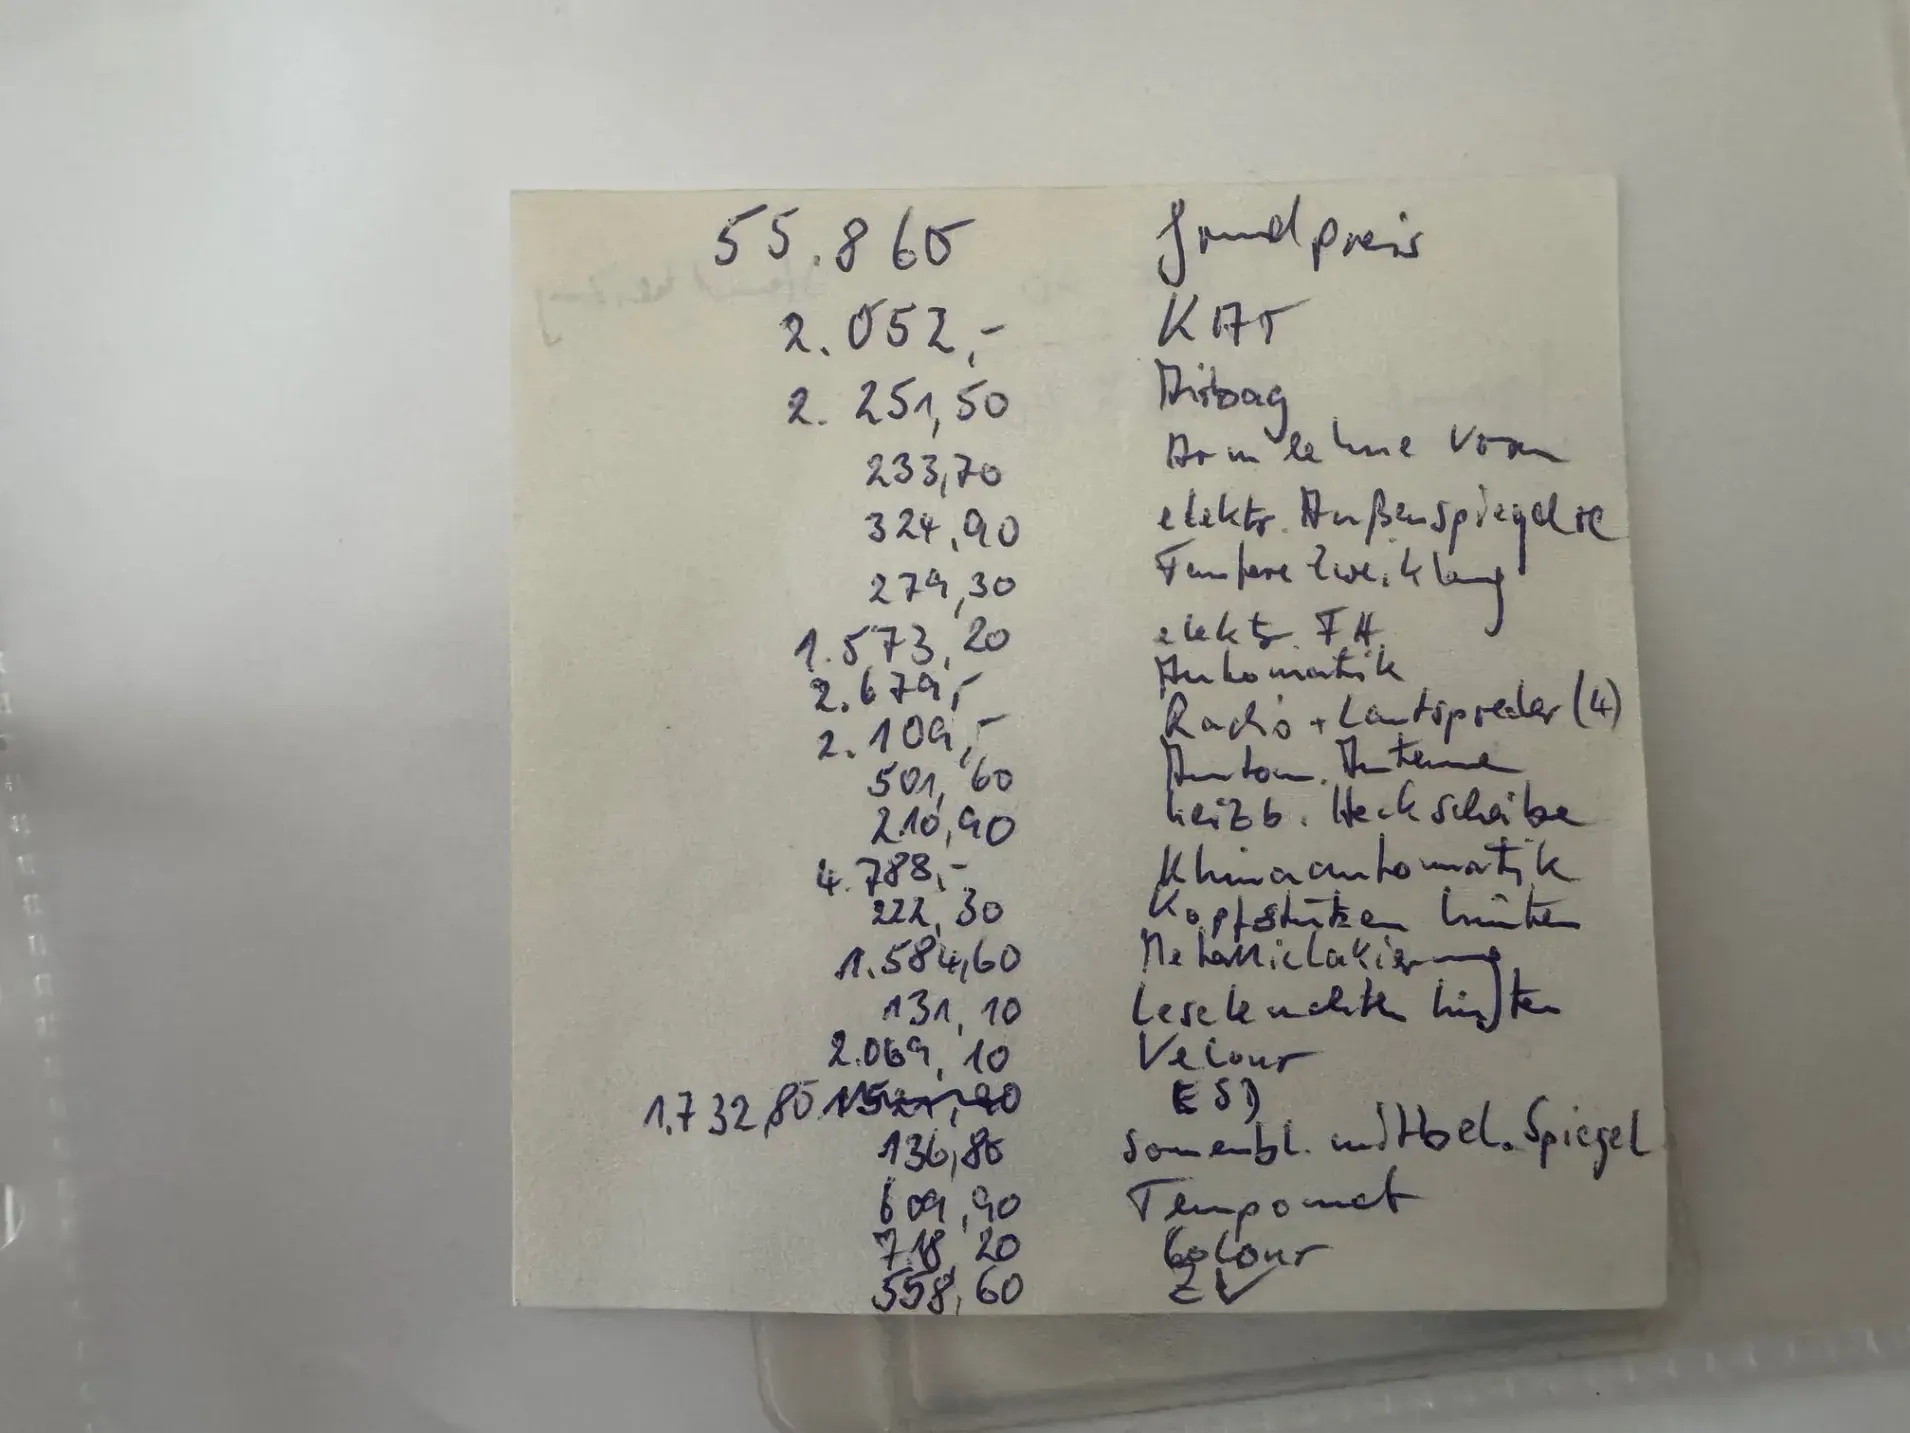 55.860 Grundpreis
2.052,- KAT
2.251,50 Airbag
233,70 Armlehne vorn
324,90 elektr. Außenspiegel re
279,30 Fanfare Zweiklang
1.573,20 elektr. FH.
2.679,- Automatik
2.109,- Radio + Lautsprecher (4)
501,60 Autom. Antenne
210,90 heizb. Heckscheibe
4.788,- Klimaautomatik
222,30 Kopfstützen hinten
1.584,60 Metallic Lakierung
131,10 Leseleuchten hinten
2.069,10 Velour
1.732,80 ESD
136,80 Sonnenbl. mit bel. Spiegel
609,90 Tempomat
718,20 Colour
558,60 ZV